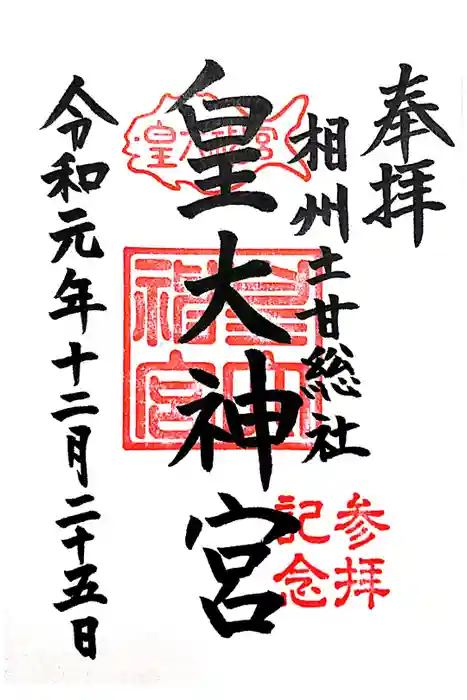 奉拝
相州土甘総社
皇大神宮
令和元年十二月二十五日
皇大神宮
皇大神宮
参拝
記念